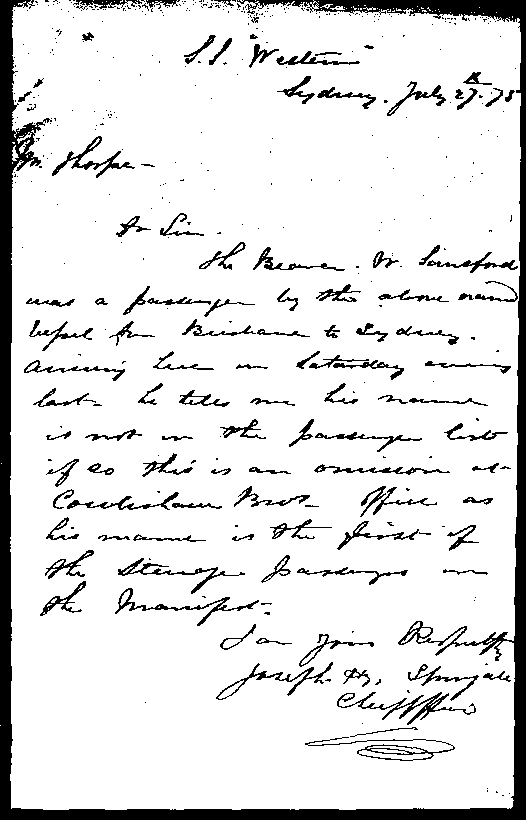 S.S. "Western"
Sydney. July 27th. 75
Mr. Thorpe -
Dr Sir.
The Bearer. W. Sainsford
was a passenger by the above named
Vessel from Brisbane to Sydney.
arriving here on Saturday evening
last - he tells me his name
is not in the passenger list
if so this is an omission at
Cowlishaw Bros. Office as
his name is the first of
the Steerage passengers on
the Manifest.
I am Yours Respectfully
Joseph Hy.
Chief Officer